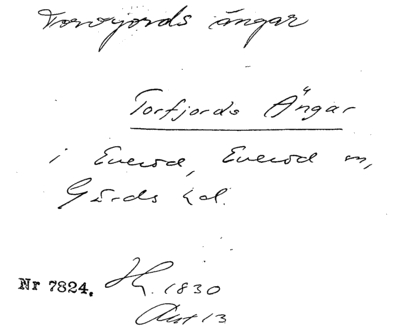 Torvfjords ängar
Torfjords Ängar
i Everöd, Everöd sn,
Gärds hd.
Nr 7824. 1830
Akt 13